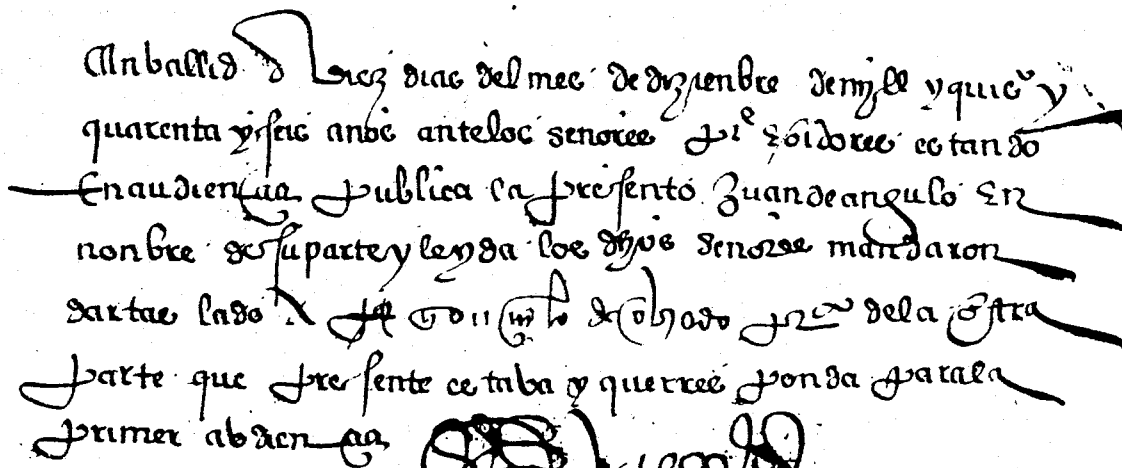 En ballid a diez dias del mes de dizienbre de mjll y quiºs y
quarenta y seis anos ante los senores pre e oidores estando
En audiencia publica la presento Juan de angulo En
nonbre de su parte y leyda los dhos senores mandaron
dar taslado a de obado pror de la otra
parte que presente estaba y que rres ponda para la
primer abdiencia